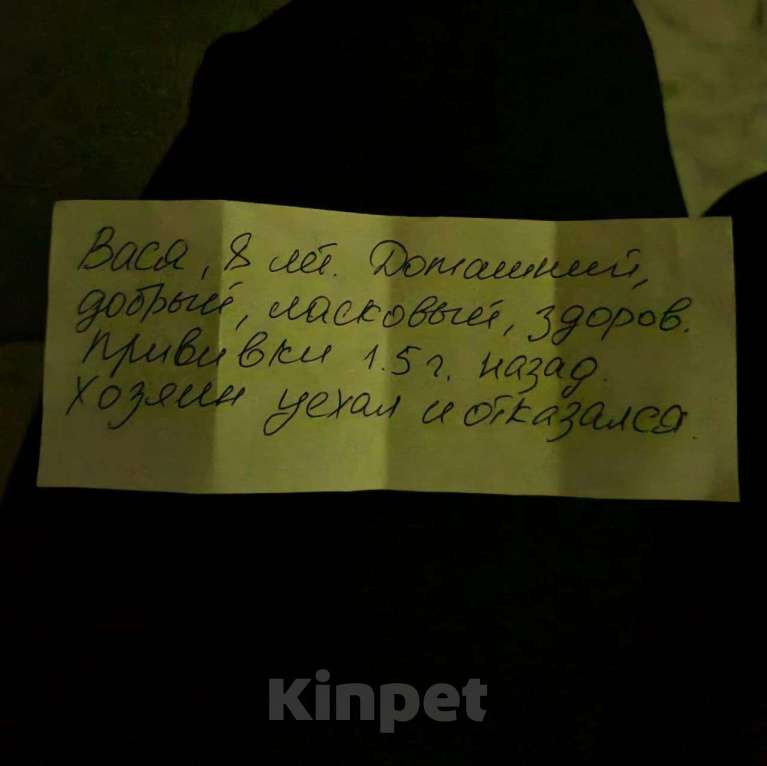 Вася, 8 лет. Домашний,
добрый, ласковый, здоров.
Прививки 1.5 г. назад.
Хозяин уехал и отказался.
Kinpet